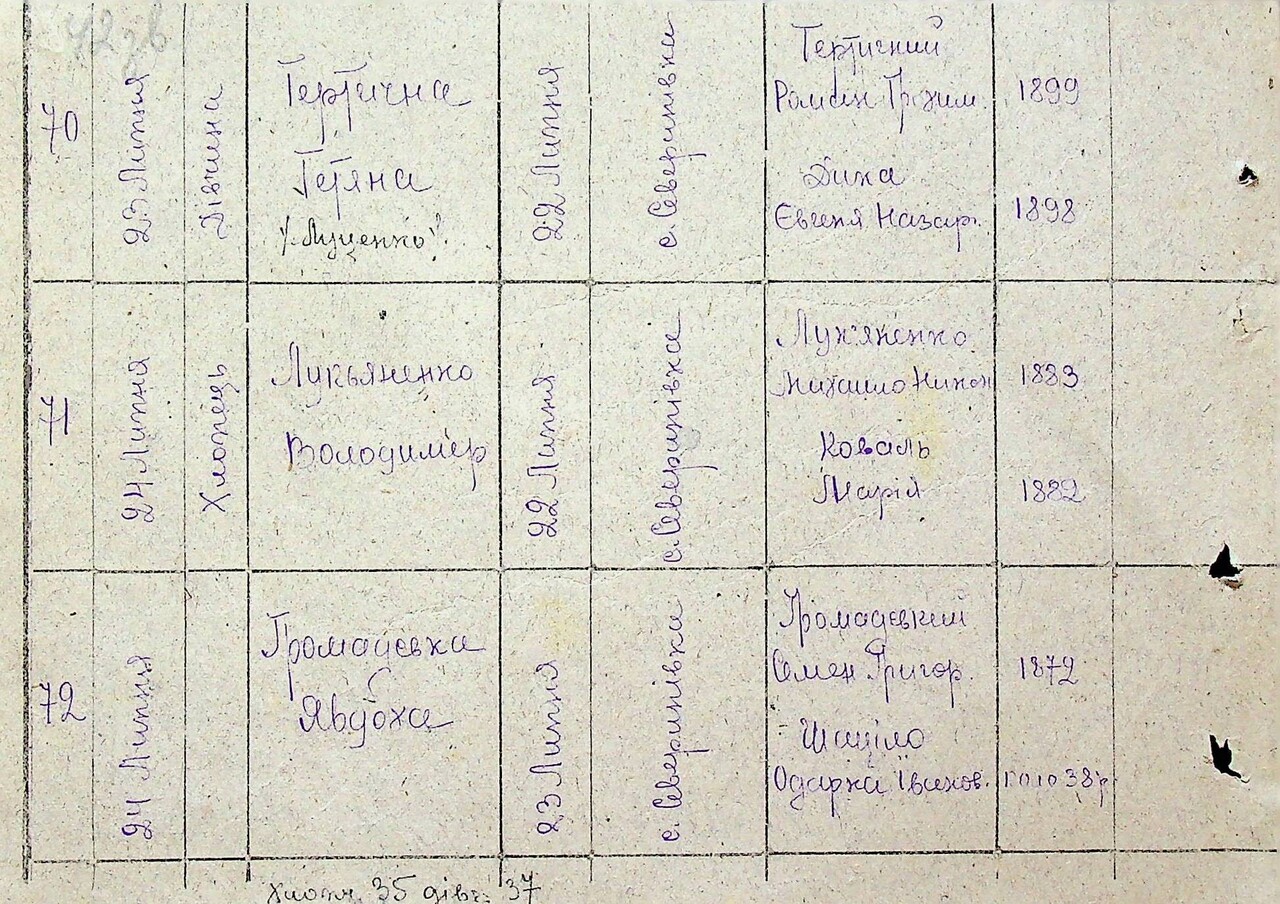 42 зв
70
23 Липня
Дівчина
Тертична
Тетяна
"Луценко"
22 Липня
с. Северинівка
Тертичний
Роман Трохим.
1899
Дика
Євгенія Назар.
1898
71
24 Липня
Хлопець
Лукьяненко
Володимєр
22 Липня
с. Северинівка
Лук'яненко
Михаило Никон
1883
Коваль
Марія
1882
72
24 Липня
Громадська
Явдоха
23 Липня
с. Северинівка
Громадський
Семен Григор.
1872
Шаціло
Одарка Іванов.
38 р
Хлопч. 35 дівч. 37